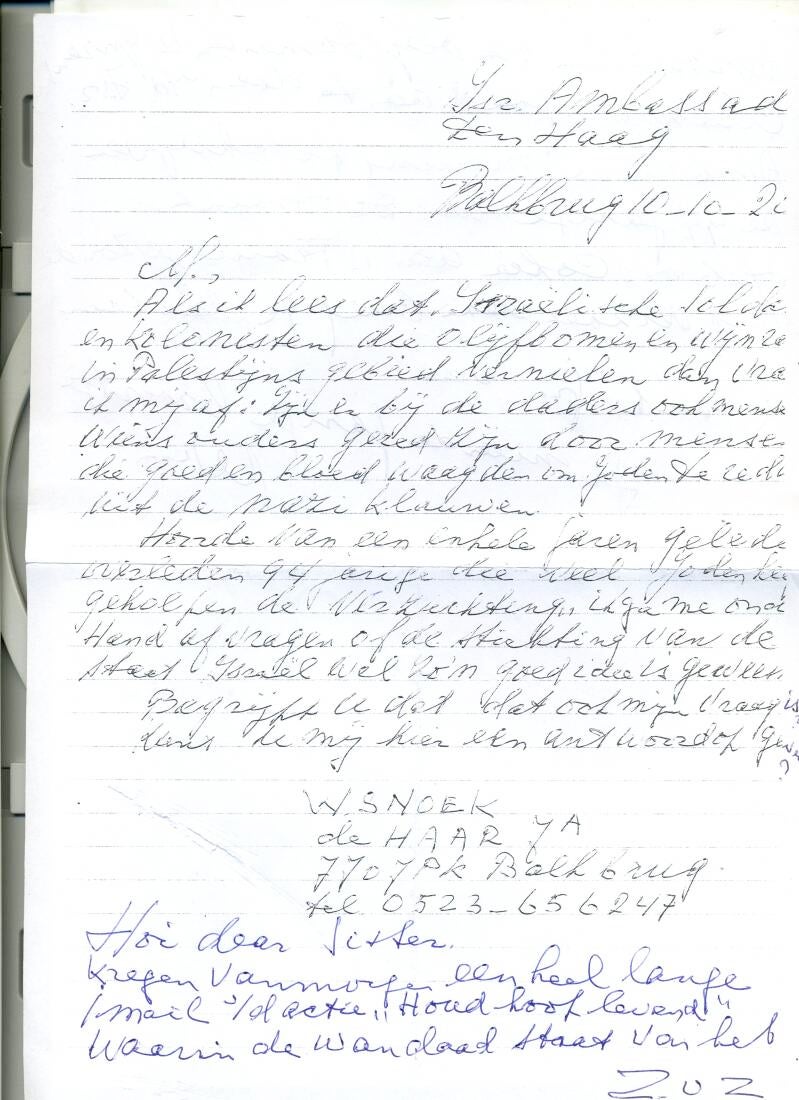 Isr. Ambassad
Den Haag
Balkbrug 10-10-2
M.,
Als ik lees dat Israëlische solda
en kolonisten die olijfbomen en wijnra
in Palestijns gebied vernielen dan vra
ik mij af: Zijn er bij de daders ook mense
wiens ouders gered zijn door mense
die goed en bloed waagden om Joden te red
uit de nazi klauwen.
Hoorde van een enkele jaren gelede
overleden 94 jarige die veel Joden
geholpen de verzuchting, ik ga me onde
Hand af vragen of de stichting van de
staat Israël wel zo'n goed idee is gewees
Begrijpt U dat dat ook mijn vraag is?
U mij hier een antwoord op geven
?
W. SNOEK
de HAAR 7A
7707PK Balkbrug
tel. 0523-656247
Hoi dear Sister.
Kregen vanmorgen een heel lange
mail v/d actie "Houd hoop levend"
Waarin de wandaad staat van het
Z.O.Z